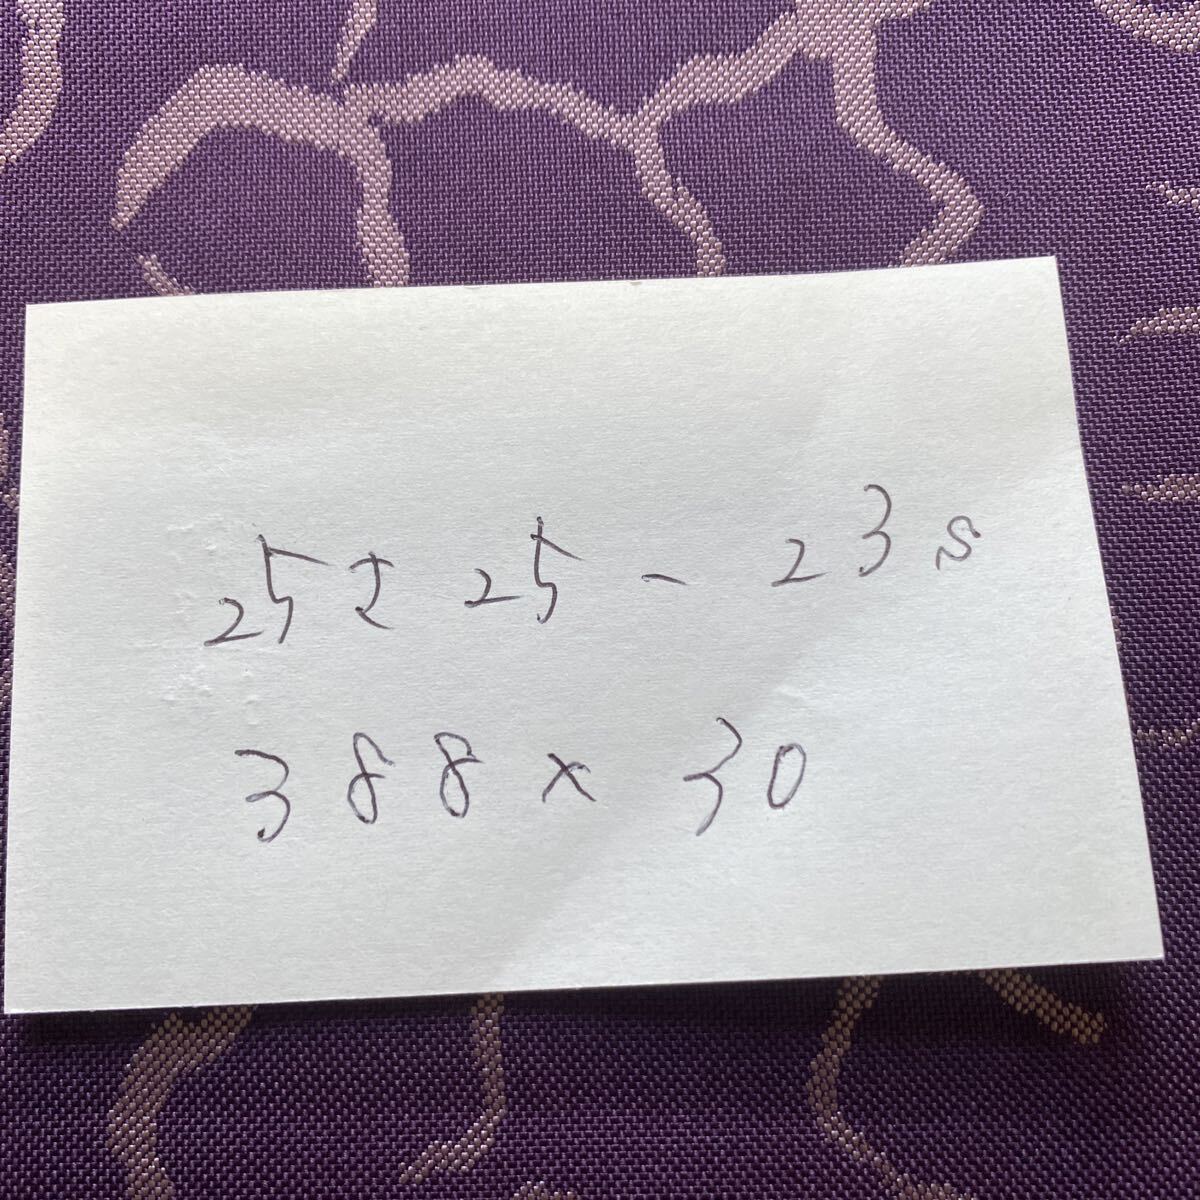 25±25-23s
388×30